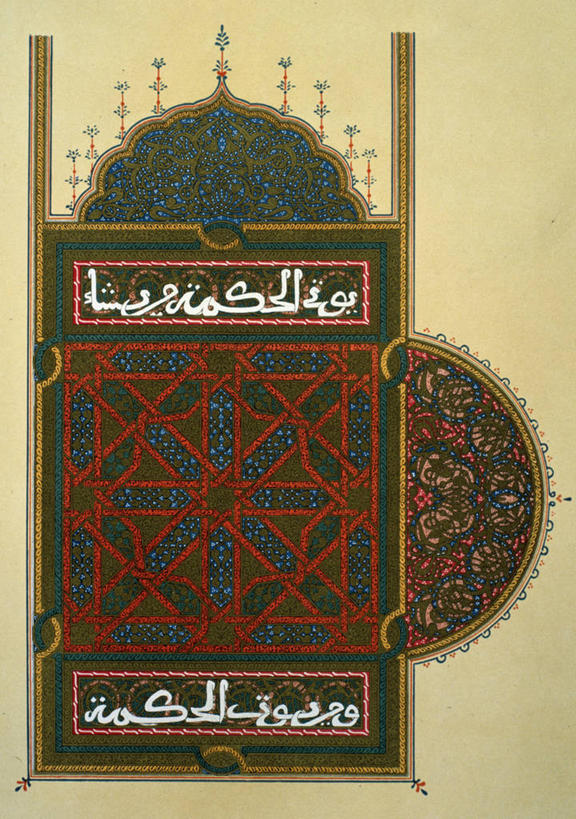 يؤتي الحكمة من يشاء
ومن يؤت الحكمة